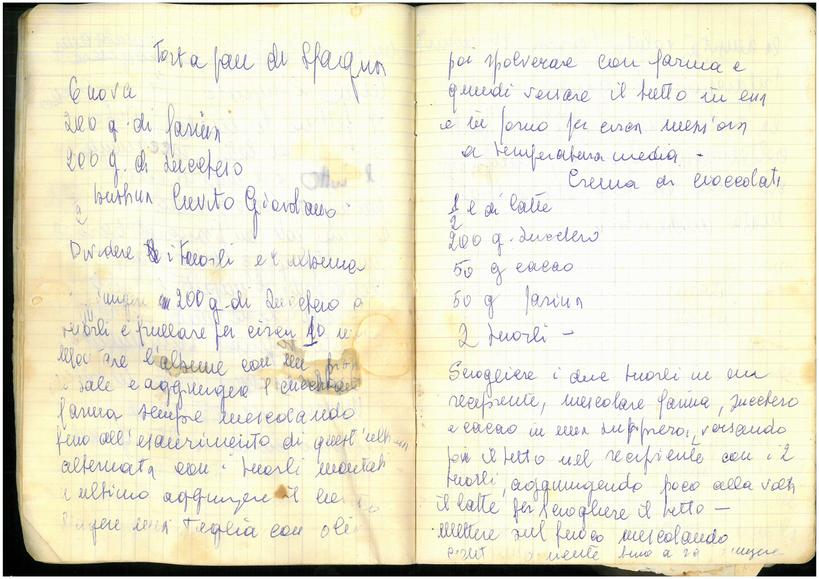 Torta pan di Spagna
6 uova
200 g. di farina
200 g. di zucchero
bustina lievito Giordano
Dividere i tuorli e l'albume
200 g. di zucchero a
tuorli e frullare per circa 10
l'albume con un
sale e aggiungere 1
farina sempre mescolando
fino all'esaurimento di quest'
alternata con i tuorli montati
ultimo aggiungere il
una teglia con
poi spolverare con farina e
quindi versare il tutto in
e in forno per circa mezz'ora
a temperatura media -
Crema di cioccolat
1/2 l di latte
200 g. zucchero
50 g cacao
50 g farina
2 tuorli -
Sciogliere i due tuorli in un
recipiente, mescolare farina, zucchero
e cacao in una zuppiera, versando
poi il tutto nel recipiente con i 2
tuorli, aggiungendo poco alla volta
il latte per sciogliere il tutto -
mettere sul fuoco mescolando
fino a